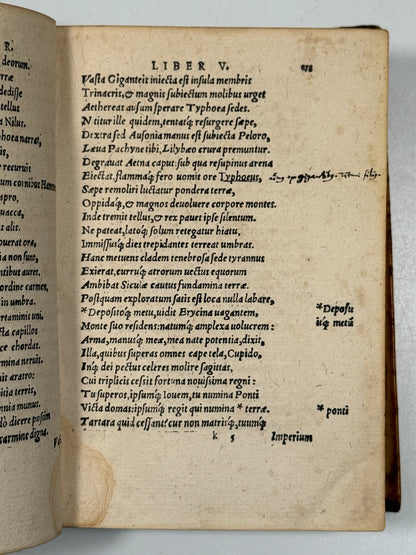 R.
deorum.
tellus
Nilus.
recuruis
quacca,
auit ora,
non sint
ntibus aures.
ordine carmen,
in vmbra.
tacta capillos
ce chordas.
mina neruis.
uit aratro:
itia terris,
mina nostra.
dicere possim
carmine digna.
LIBER V.
Vasta Giganteis iniecta est insula membris
Trinacris, & magnis subiectum molibus urget
Aethereas ausum sperare Typhoea sedes.
Nititur ille quidem, tentatq́; resurgere sæpe,
Dextra sed Ausonia manus est subiecta Peloro,
Læua Pachyne tibi, Lilybæo crura premuntur.
Degrauat Aetna caput: sub qua resupinus arena
Eiectat, flammaq́; fero uomit ore Typhoeus,
Sæpe remoliri luctatur pondera terræ,
Oppidaq́;, & magnos deuoluere corpore montes.
Inde tremit tellus, & rex pauet ipse silentum.
Ne pateat, latoq́; solum retegatur hiatu,
Immissusq́; dies trepidantes terreat umbras.
Hanc metuens cladem tenebrosa sede tyrannus
Exierat, curruq́; atrorum uectus equorum
Ambibat Siculæ cautus fundamina terræ.
Postquam exploratum satis est loca nulla labare,
*Depositoq́; metu, uidit Erycina uagantem,
*Deposu
itq́; metū
Monte suo residens: natumq́; amplexa uolucrem:
Arma, manusq́; meæ, mea nate potentia, dixit,
Illa, quibus superas omnes cape tela, Cupido,
Inq́; dei pectus celeres molire sagittas,
Cui triplicis cessit fortuna nouissima regni:
Tu superos, ipsumq́; Iouem, tu numina Ponti
Victa domas: ipsumq́; regit qui numina *terræ.
*ponti
Tartara quid cessant? cur non matrisq́;, tuumq́;
K 5 Imperium